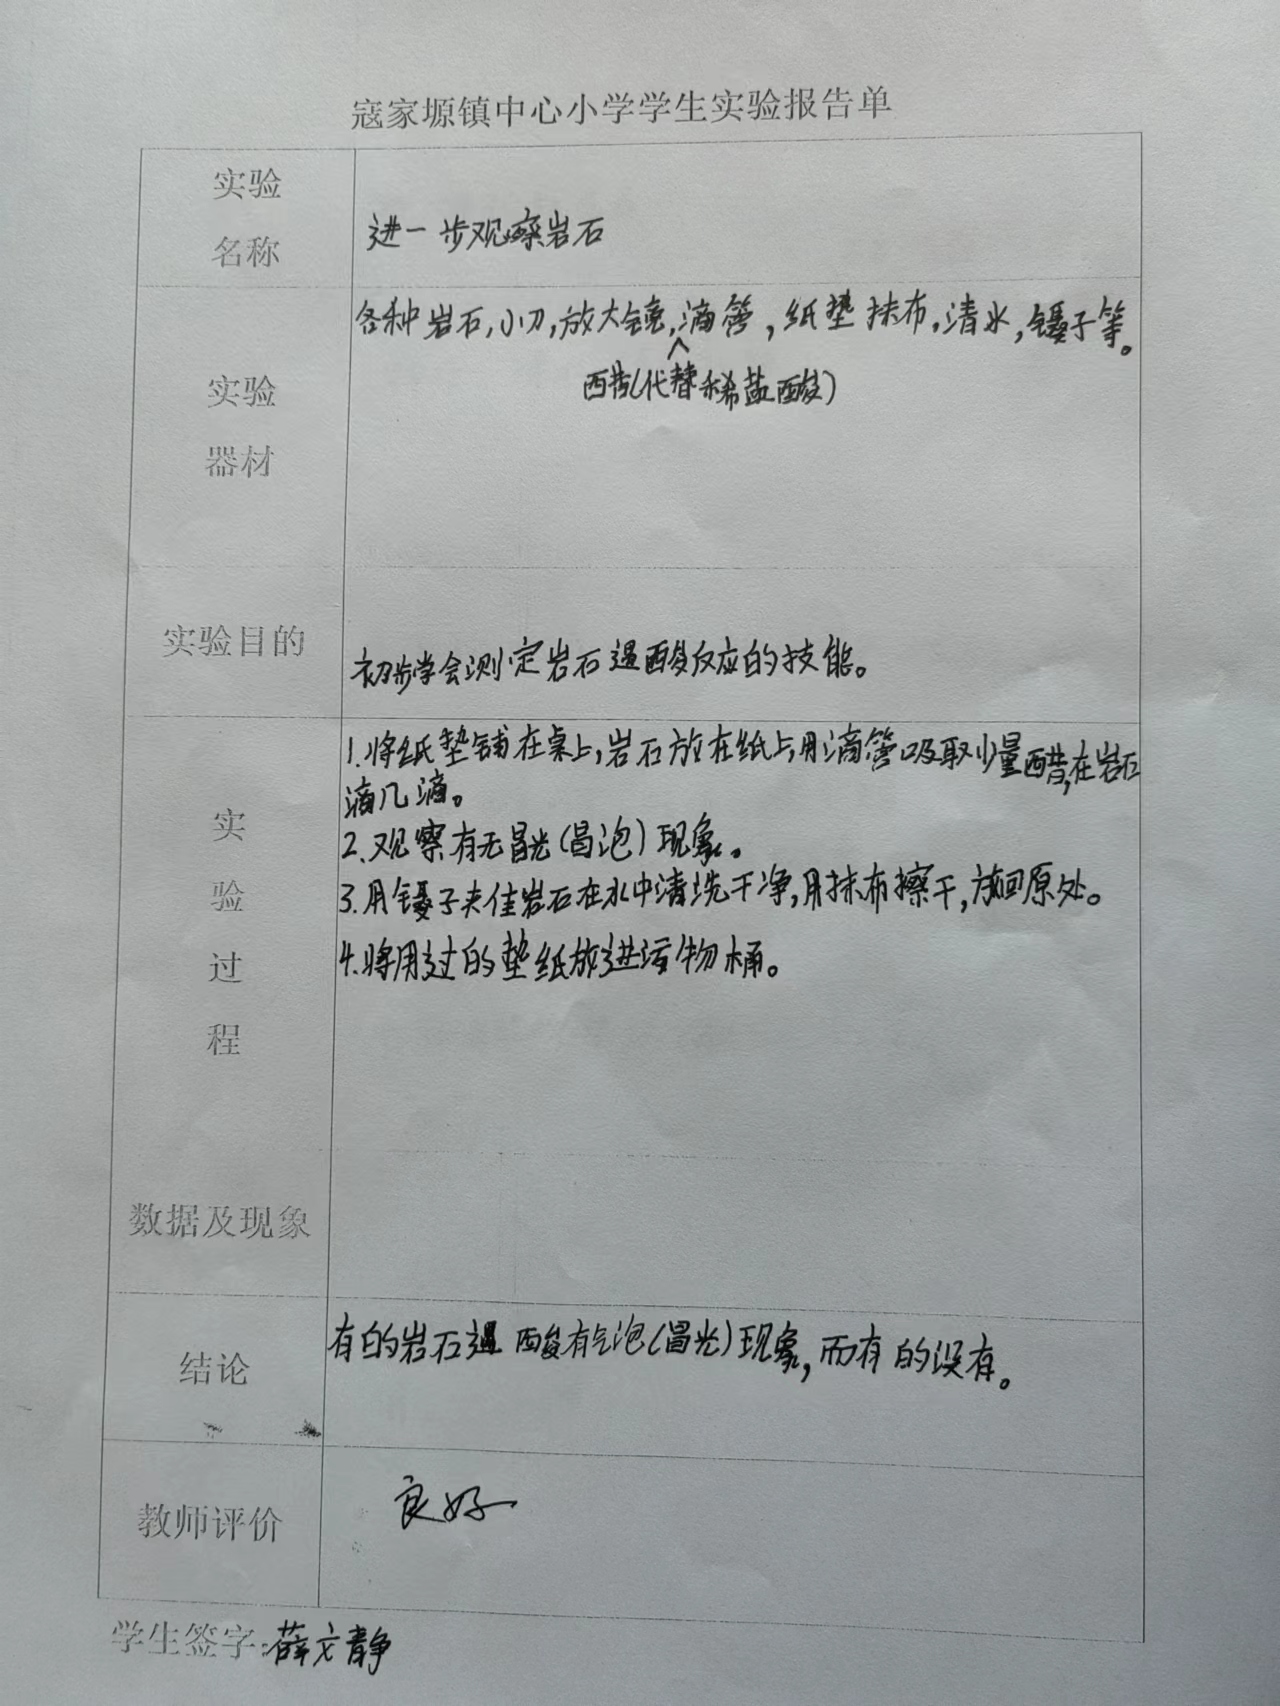 寇家塬镇中心小学学生实验报告单
实验
名称
进一步观察岩石
各种岩石,小刀,放大镜,滴管,纸垫 抹布,清水,镊子等。
醋(代替稀盐酸)
实验
器材
实验目的
初步学会测定岩石遇酸反应的技能。
1.将纸垫铺在桌上,岩石放在纸上,用滴管吸取少量醋,在岩石
滴几滴。
2.观察有无冒光(冒泡)现象。
3.用镊子夹住岩石在水中清洗干净,用抹布擦干,放回原处。
4.将用过的垫纸放进污物桶。
实
验
过
程
数据及现象
有的岩石遇 酸有气泡(冒光)现象,而有的没有。
结论
教师评价
良好
学生签字:薛文静